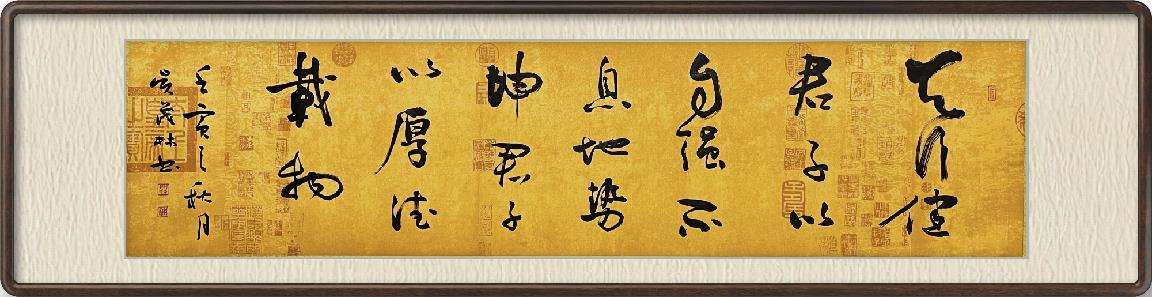 天行健
君子以
自强不
息地势
坤君子
以厚德
載物
壬寅之秋月
吴茂林书